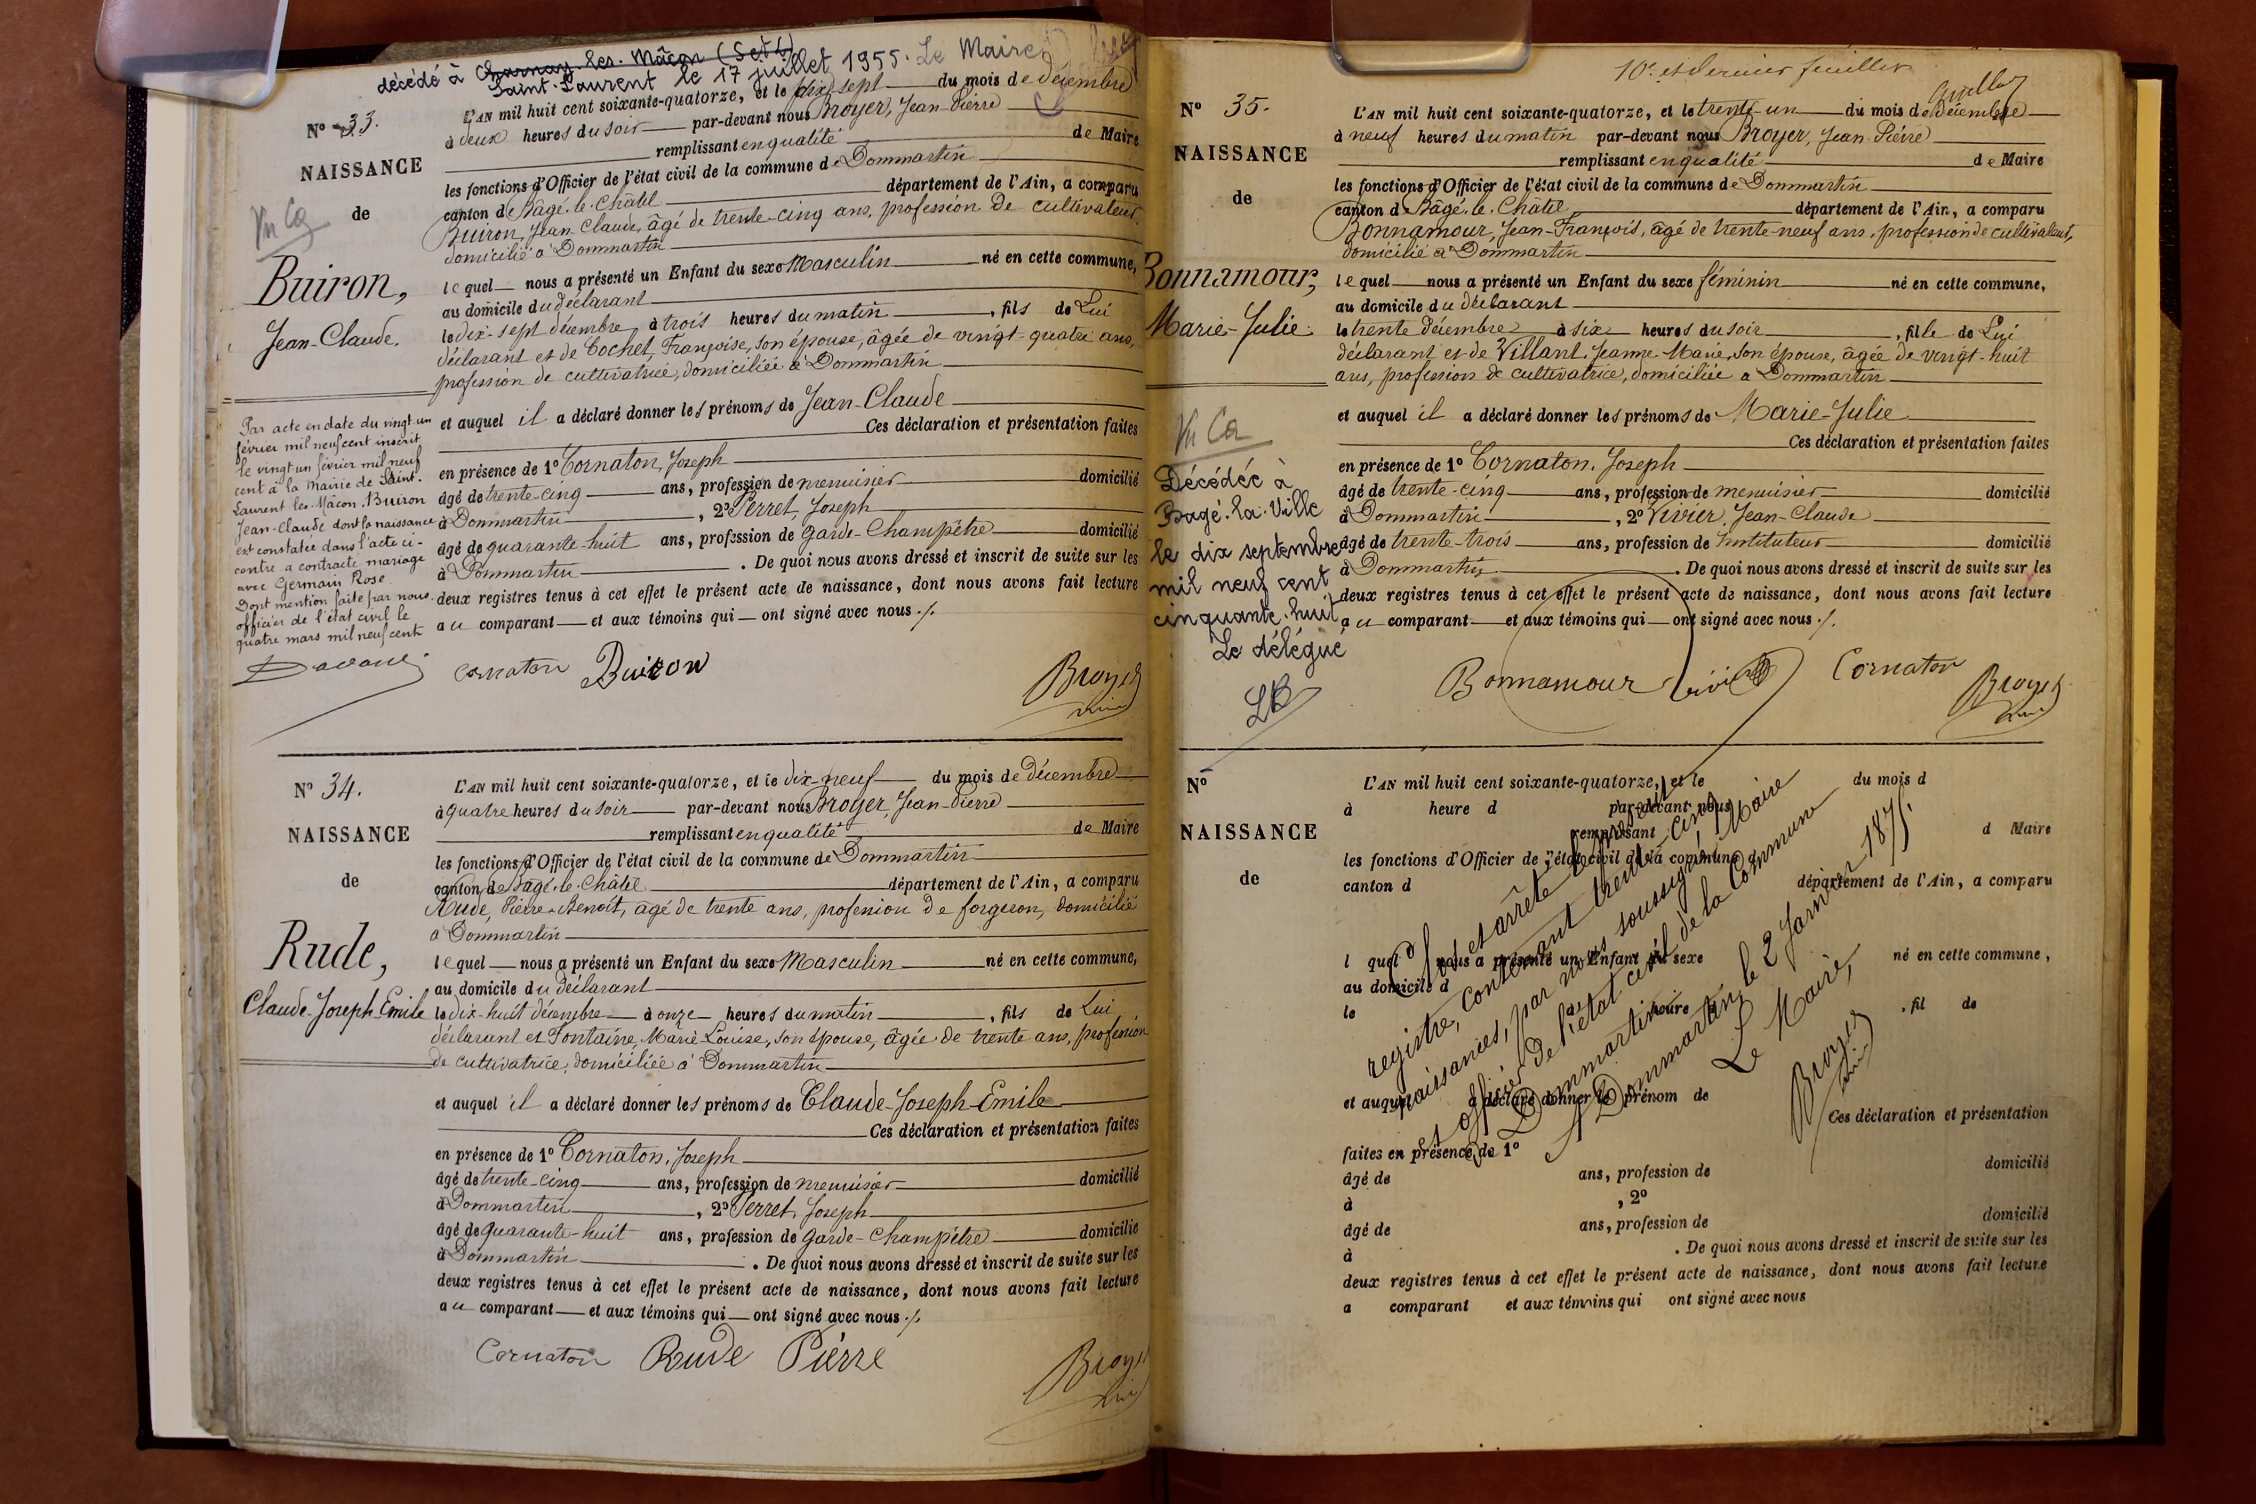 décédé à Charnay-les-Mâcon (S et L)
Saint-Laurent le 17 juillet 1955. Le Maire
N° 33.
NAISSANCE
de
Vu
Buiron,
Jean-Claude.
L'AN mil huit cent soixante-quatorze, et le dix-sept du mois de décembre
à deux heures du soir par-devant nous Broyer, Jean-Pierre
remplissant en qualité de Maire
les fonctions d'Officier de l'état civil de la commune de Dommartin
canton de Bâgé-le-Châtel département de l'Ain, a comparu
Buiron, Jean-Claude, âgé de trente-cinq ans, profession de cultivateur,
domicilié à Dommartin
lequel nous a présenté un Enfant du sexe Masculin né en cette commune,
au domicile du déclarant
le dix-sept décembre à trois heures du matin, fils de Lui
déclarant et de Cochet, Françoise, son épouse, âgée de vingt-quatre ans,
profession de cultivatrice, domiciliée à Dommartin
et auquel il a déclaré donner les prénoms de Jean-Claude
Ces déclaration et présentation faites
en présence de 1° Cornaton, Joseph
âgé de trente-cinq ans, profession de menuisier domicilié
à Dommartin, 2° Perret, Joseph
âgé de quarante-huit ans, profession de garde-champêtre domicilié
à Dommartin. De quoi nous avons dressé et inscrit de suite sur les
deux registres tenus à cet effet le présent acte de naissance, dont nous avons fait lecture
au comparant et aux témoins qui ont signé avec nous ./.
Par acte en date du vingt un
février mil neuf cent inscrit
le vingt un février mil neuf
cent à la Mairie de Saint-
Laurent-les-Mâcon, Buiron
Jean-Claude dont la naissance
est constatée dans l'acte ci-
contre a contracté mariage
avec Germain Rose.
Dont mention faite par nous
officier de l'état civil le
quatre mars mil neuf cent
Cornaton Buiron Broyer
N° 34.
NAISSANCE
de
Rude,
Claude-Joseph-Emile
L'AN mil huit cent soixante-quatorze, et le dix-neuf du mois de décembre
à quatre heures du soir par-devant nous Broyer, Jean-Pierre
remplissant en qualité de Maire
les fonctions d'Officier de l'état civil de la commune de Dommartin
canton de Bâgé-le-Châtel département de l'Ain, a comparu
Rude, Pierre-Benoit, âgé de trente ans, profession de forgeron, domicilié
à Dommartin
lequel nous a présenté un Enfant du sexe Masculin né en cette commune,
au domicile du déclarant
le dix-huit décembre à onze heures du matin, fils de Lui
déclarant et Fontaine, Marie-Louise, son épouse, âgée de trente ans, profession
de cultivatrice, domiciliée à Dommartin
et auquel il a déclaré donner les prénoms de Claude-Joseph-Emile
Ces déclaration et présentation faites
en présence de 1° Cornaton, Joseph
âgé de trente-cinq ans, profession de menuisier domicilié
à Dommartin, 2° Perret, Joseph
âgé de quarante-huit ans, profession de garde-champêtre domicilié
à Dommartin. De quoi nous avons dressé et inscrit de suite sur les
deux registres tenus à cet effet le présent acte de naissance, dont nous avons fait lecture
au comparant et aux témoins qui ont signé avec nous ./.
Cornaton Rude Pierre Broyer
10e et dernier feuillet
N° 35.
NAISSANCE
de
Bonnamour,
Marie-Julie.
L'AN mil huit cent soixante-quatorze, et le trente-un du mois de décembre
à neuf heures du matin par-devant nous Broyer, Jean-Pierre
remplissant en qualité de Maire
les fonctions d'Officier de l'état civil de la commune de Dommartin
canton de Bâgé-le-Châtel département de l'Ain, a comparu
Bonnamour, Jean-François, âgé de trente-neuf ans, profession de cultivateur,
domicilié à Dommartin
lequel nous a présenté un Enfant du sexe féminin né en cette commune,
au domicile du déclarant
le trente décembre à six heures du soir, fille de Lui
déclarant et de Villant, Jeanne-Marie, son épouse, âgée de vingt-huit
ans, profession de cultivatrice, domiciliée à Dommartin
et auquel il a déclaré donner les prénoms de Marie-Julie
Ces déclaration et présentation faites
en présence de 1° Cornaton, Joseph
âgé de trente-cinq ans, profession de menuisier domicilié
à Dommartin, 2° Vivier, Jean-Claude
âgé de trente-trois ans, profession de Instituteur domicilié
à Dommartin. De quoi nous avons dressé et inscrit de suite sur les
deux registres tenus à cet effet le présent acte de naissance, dont nous avons fait lecture
au comparant et aux témoins qui ont signé avec nous ./.
Vu
Décédée à
Bagé-la-Ville
le dix septembre
mil neuf cent
cinquante-huit
Le délégué
Bonnamour Vivier Cornaton Broyer
N°
NAISSANCE
de
L'AN mil huit cent soixante-quatorze, et le du mois d
à heure d par-devant nous
remplissant d Maire
les fonctions d'Officier de l'état civil de la commune d
canton d département de l'Ain, a comparu
l quel nous a présenté un Enfant du sexe né en cette commune,
au domicile d
le à heure , fil de
et auquel a déclaré donner le prénom de
Ces déclaration et présentation
faites en présence de 1°
âgé de ans, profession de domicilié
à , 2°
âgé de ans, profession de domicilié
à . De quoi nous avons dressé et inscrit de suite sur les
deux registres tenus à cet effet le présent acte de naissance, dont nous avons fait lecture
a comparant et aux témoins qui ont signé avec nous
Clos et arrêté le présent
registre, contenant trente-cinq
naissances, par nous soussigné, Maire
et officier de l'état civil de la Commune
de Dommartin.
A Dommartin, le 2 Janvier 1875.
Le Maire,
Broyer